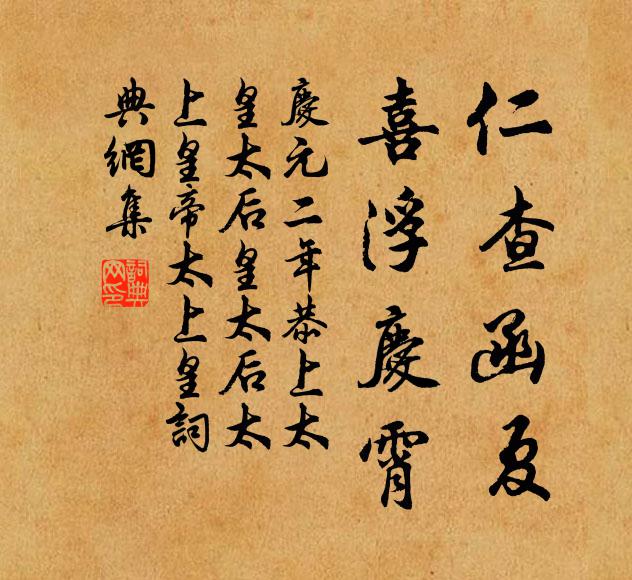 仁查函夏
喜浮慶霄
慶元二年恭上太
皇太后皇太后太
上皇帝太上皇詞
典網集
詞典
网印